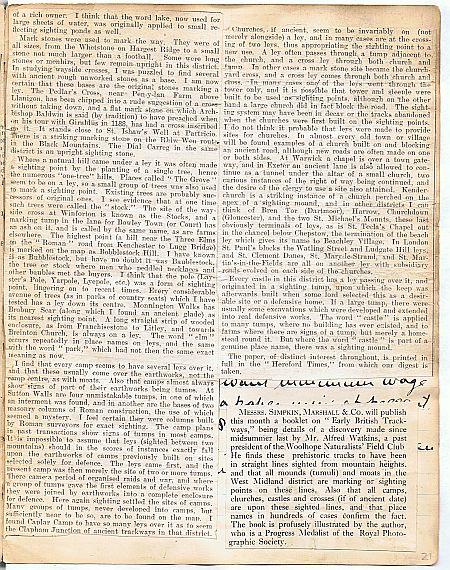 of a rich owner. I think that the word lake, now used for
large sheets of water, was originally applied to small re-
flecting sighting ponds as well.
Mark stones were used to mark the way. They were of
all sizes, from the Whetstone on Hargest Ridge to a small
stone not much larger than a football. Some were long
stones or menhirs, but few remain upright in this district.
In studying wayside crosses, I was puzzled to find several
with ancient rough unworked stones as a base. I am now
certain that these bases are the original stones marking a
ley. The Pedlar's Cross, near Pen-y-lan Farm above
Llanigon, has been chipped into a rude suggestion of a cross
without taking down, and a flat mark stone on which Arch-
bishop Baldwin is said (by tradition) to have preached when
on his tour with Giraldus in 1188, had had a cross inscribed
it. It stands close to St. Ishaw's Well at Partricio.
There is a striking marking stone on the Rhiw Wen route
in the Black Mountains. The Dial Carreg in the same
district is an upright sighting stone.
Where a natural hill came under a ley it was often made
a sighting point by the planting of a single tree, hence
the numerous "one-tree" hills. Places called "The Grove"
seem to be on a ley, so a small group of trees was also used
to mark a sighting point. Existing trees are probably suc-
cessors of original ones. I see evidence that at one time
such trees were called the "stock." The site of the way-
side cross at Winforton is known as the Stocks, and a
marking tump in the lane for Bowley Town (or Court) has
an ash on it, and is called by the same name, as are farms
elsewhere. The highest point (a hill near the Three Elms
on the "Roman" road from Kenchester to Lugg Bridge)
is marked on the map as Bobblestock Hill. I have known
it as Bubblestock, but have no doubt it was Baublestock,
the tree or stock where men who peddled necklaces and
other baubles met the buyers. I think that the pole (Lay-
ster's Pole, Yarpole, Lyepole, etc.) was a form of sighting
point, lingering on to recent times. Every considerable
avenue of trees (as in parks of country seats) which I have
tested has a ley down its centre. Monnington Walks has
Brobury Scar (along which I found an ancient glade) as
its nearest sighting point. A long straight strip of wooded
enclosure, as from Franchisestone to Litley, and towards
Breinton Church, is always on a ley. The word "elm"
occurs repeatedly in place names on leys, and the same
with the word "park," which had not then the same exact
meaning as now.
I find that every camp seems to have several leys over it,
and that these usually come over the earthworks, not the
camp centre, as with moats. Also that camps almost always
show signs of part of their earthworks being tumps. At
Sutton Walls are four unmistakable tumps, in one of which
an interment was found, and in another are the bases of two
masonry columns of Roman construction, the use of which
seemed a mystery. I feel certain they were columns built
by Roman surveyors for exact sighting. The camp plans
in past transactions show signs of tumps in most camps.
It is impossible to assume that leys (sighted between two
mountains) should in the scores of instances exactly fall
upon the earthworks of camps previously built on sites
selected solely for defence. The leys came first, and the
present camp was then merely the site of two or more tumps.
There came a period of organised raids and war, and where
a group of tumps gave the first elements of defensive works
they were joined by earthworks into a complete enclosure
for defence. Here again sighting settled the sites of camps.
Many groups of tumps, never developed into camps, but
sufficiently near to be so, are to be found on the map. I
found Caplar Camp to have so many leys over it as to seem
the Clapham Junction of ancient trackways in that district.
Churches, if ancient, seem to be invariably on (not
merely alongside) a ley, and in many cases are at the cross-
ing of two leys, thus appropriating the sighting point to a
new use. A ley often passes through a tump adjacent to
the church, and a cross ley through both church and
tump. In other cases a mark stone site became the church-
yard cross, and a cross ley comes through both church and
cross. In many cases one of the leys went through the
tower only, and it is possible that tower and steeple were
built to be used as sighting points, although on the other
hand a large church did in fact block the road. The sight-
ing system may have been in decay or the tracks abandoned
when the churches were first built on the sighting points.
I do not think it probable that leys were made to provide
sites for churches. In almost every old town or village
will be found examples of a church built on and blocking
an ancient road, although new roads are often made on one
or both sides. At Warwick a chapel is over a town gate-
way, and in Exeter an ancient lane is also allowed to con-
tinue as a tunnel under the altar of a small church, two
curious instances of the right of way being continued, and
the desire of the clergy to use a site also attained. Kender-
church is a striking instance of a church perched on the
apex of a sighting mound, and in other districts I can
think of Bren Tor (Dartmoor), Harrow, Churchdown
(Gloucester), and the two St. Michael's Mounts, these last
obviously terminals of leys, as is St. Tecla's Chapel out
in the channel below Chepstow, the termination of the beach
ley which gives its name to Beachley Village. In London
St. Paul's blocks the Watling Street and Ludgate Hill leys,
and St. Clement Danes, St. Mary-le-Strand, and St. Mar-
tin's-in-the-Fields are all on another ley, with subsidiary
roads evolved on each side of the churches.
Every castle in this district has a ley passing over it, and
originated in a sighting tump, upon which the keep was
afterwards built when some lord selected this as a desir-
able site or a defensible home. If a large tump, there were
usually some excavations which were developed and extended
into real defensive works. The word "castle" is applied
to many tumps, where no building has ever existed, and to
farms where there are signs of a tump, but merely a home-
stead round it. But where the word "castle" is part of a
genuine place name, there was a sighting mound.
The paper, of distinct interest throughout, is printed in
full in the "Hereford Times," from which our digest is
taken.
Messrs. Simpkin, Marshall & Co. will publish
this month a booklet on "Early British Track-
ways," being details of a discovery made since
midsummer last by Mr. Alfred Watkins, a past
president of the Woolhope Naturalists' Field Club
He finds these prehistoric tracks to have been
in straight lines sighted from mountain heights,
and that all mounds (tumuli) and moats in the
West Midland district are marking or sighting
points on these lines. Also that all camps,
churches, castles and crosses (if of ancient date)
are upon these sighted lines, and that place
names in hundreds of cases confirm the fact.
The book is profusely illustrated by the author,
who is a Progress Medalist of the Royal Photo-
graphic Society.
21